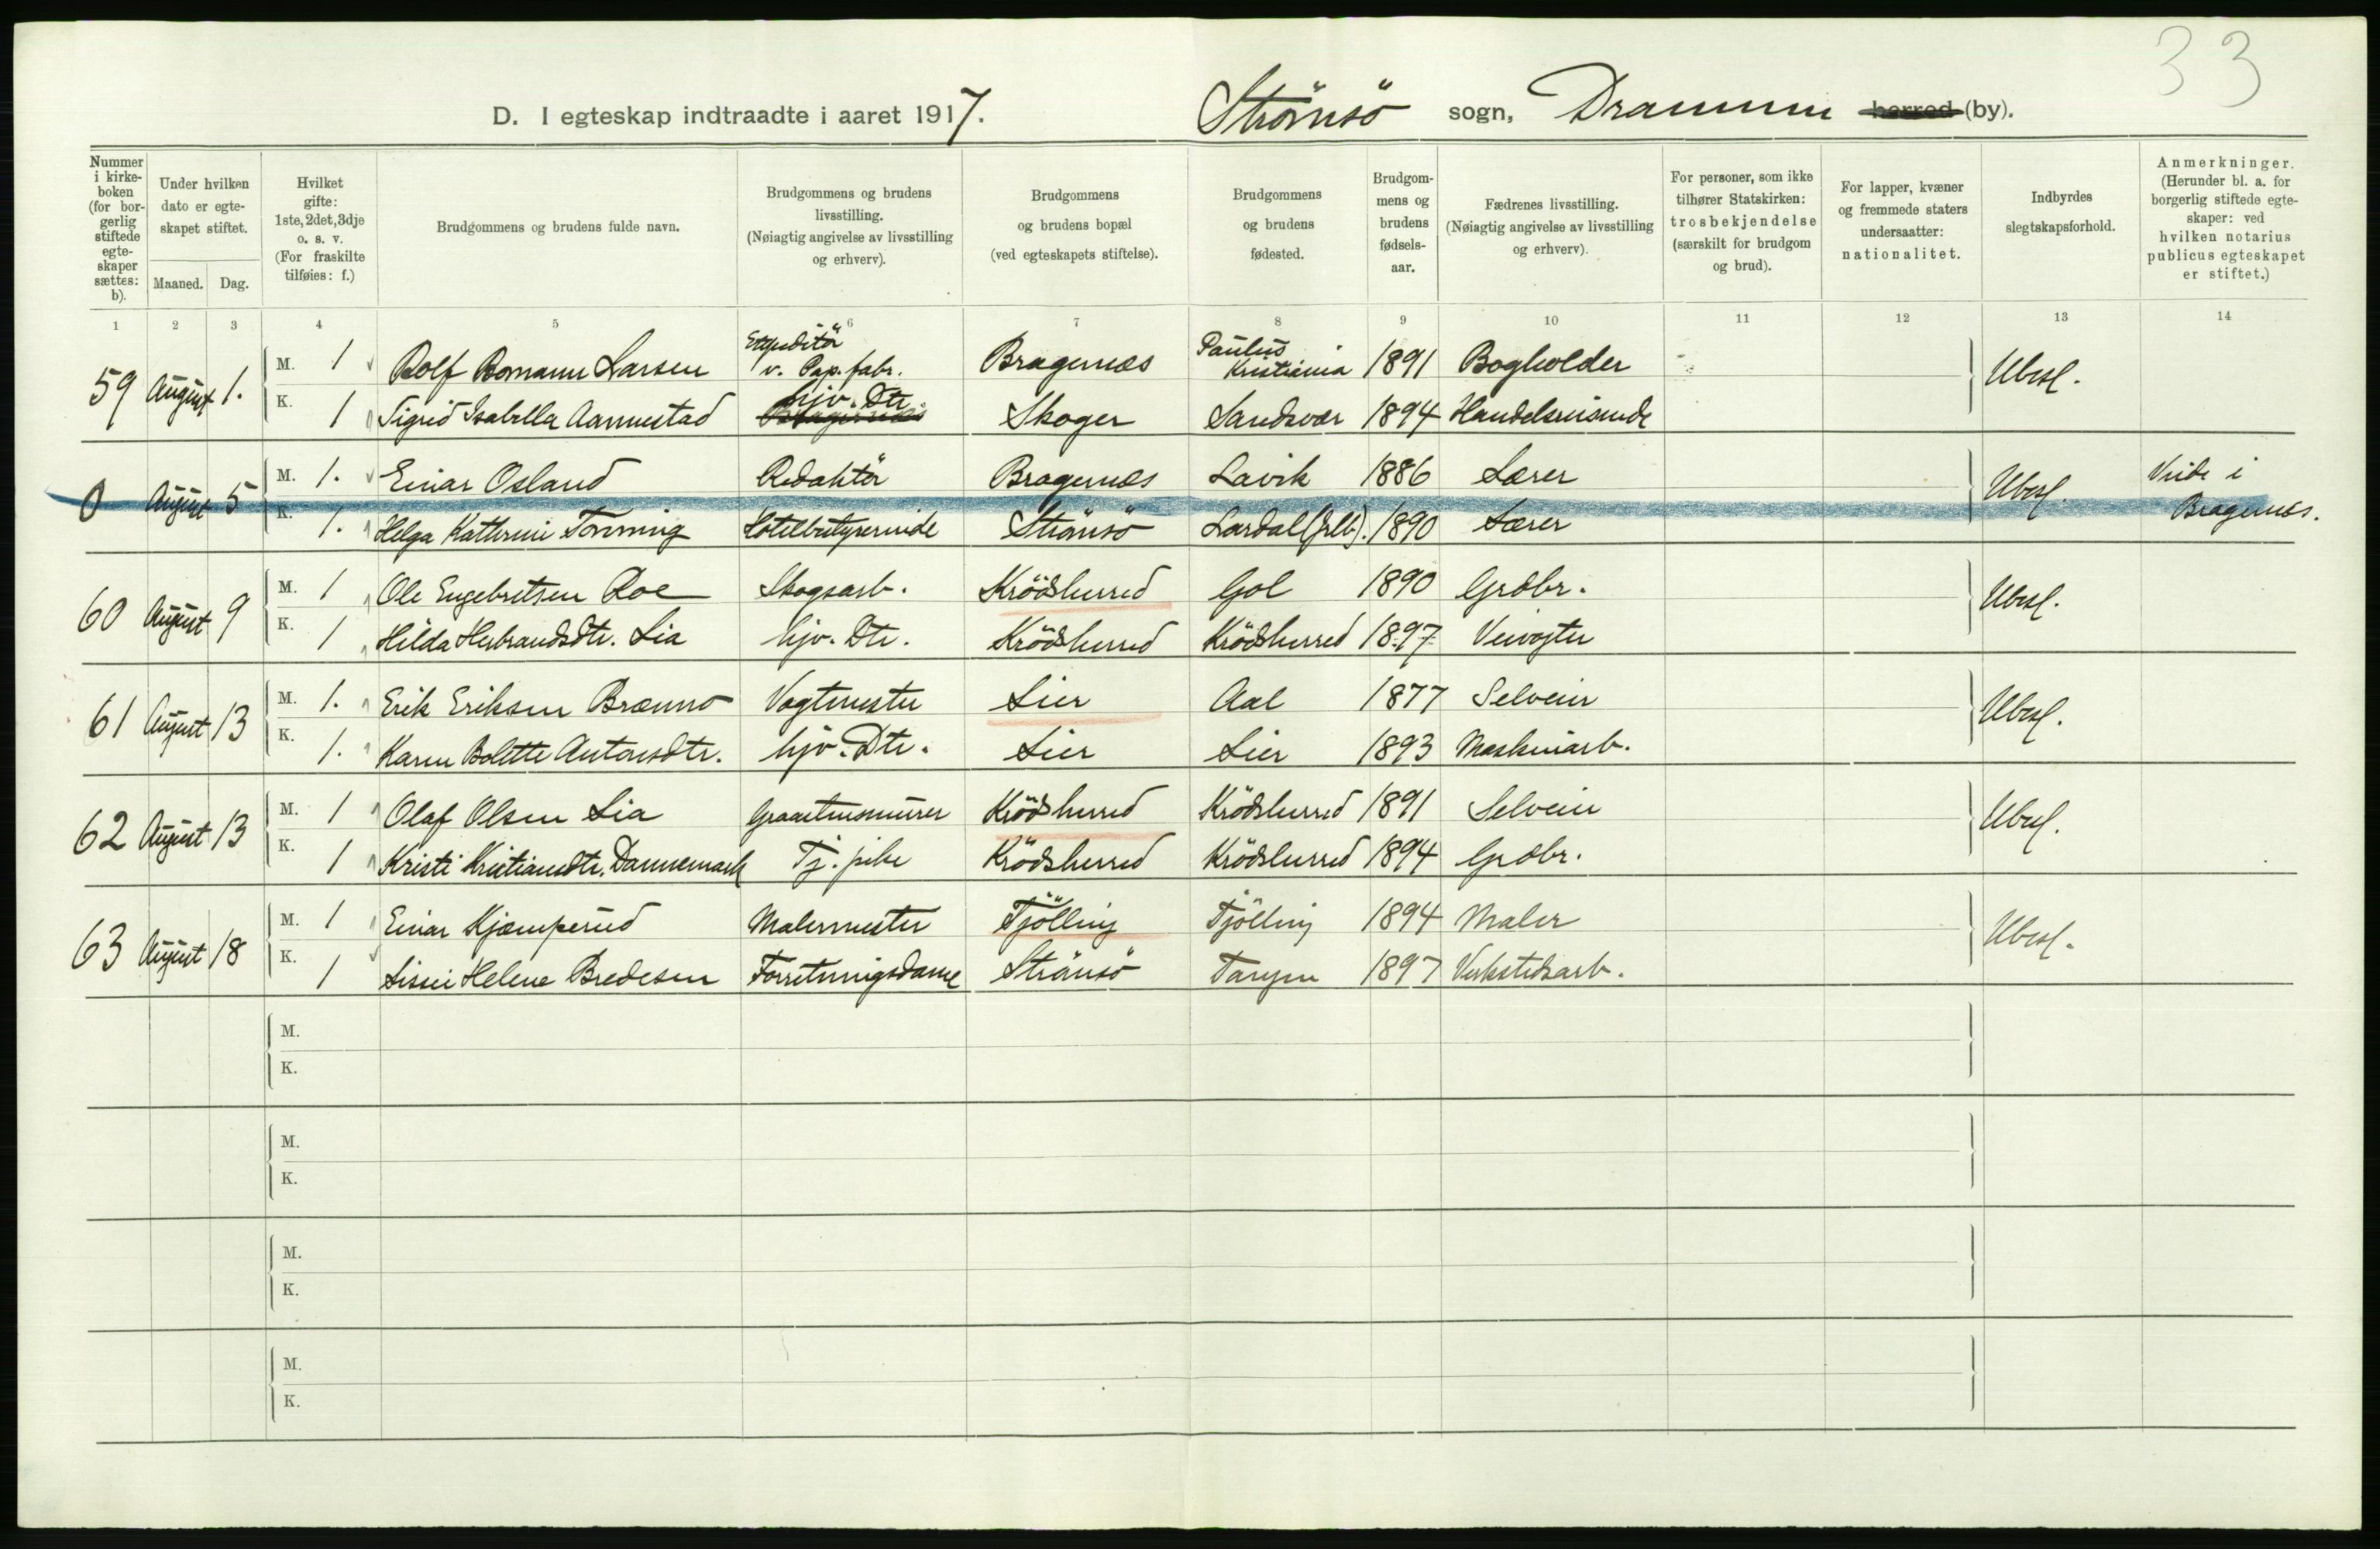 33
D. I egteskap indtraadte i aaret 1917. Strömsö sogn, Drammen herred (by).
Nummer i kirke-boken (for bor-gerlig stiftede egte-skaper sættes: b).
Under hvilken dato er egte-skapet stiftet.
Maaned. Dag.
Hvilket gifte: 1ste, 2det, 3dje o. s. v. (For fraskilte tilføies: f.)
Brudgommens og brudens fulde navn.
Brudgommens og brudens livsstilling. (Nøiagtig angivelse av livsstilling og erhverv).
Brudgommens og brudens bopæl (ved egteskapets stiftelse).
Brudgommens og brudens fødested.
Brudgom-mens og brudens fødsels-aar.
Fædrenes livsstilling. (Nøiagtig angivelse av livsstilling og erhverv).
For personer, som ikke tilhører Statskirken: trosbekjendelse (særskilt for brudgom og brud).
For lapper, kvæner og fremmede staters undersaatter: nationalitet.
Indbyrdes slegtskapsforhold.
Anmerkninger. (Herunder bl. a. for borgerlig stiftede egte-skaper: ved hvilken notarius publicus egteskapet er stiftet.)
1 2 3 4 5 6 7 8 9 10 11 12 13 14
59 August 1. M. 1 Rolf Bomann Larsen Expeditör v. Pap. fabr. Bragernæs Paulus Kristiania 1891 Bogholder Ubesl.
K. 1 Sigrid Isabella Aannestad hjv. Dtr. Skoger Sandsvær 1894 Handelsreisende
0 August 5 M. 1. Einar Osland Redaktör Bragernæs Lavik 1886 Lærer Ubesl. Viede i Bragernæs.
K. 1. Helga Kathrine Tonning Hotelbestyrerinde Strömsö Lardal (Jrlb). 1890 Lærer
60 August 9 M. 1 Ole Engebretsen Roe Skogsarb. Krödsherred Gol 1890 Grdbr. Ubesl.
K. 1 Hilda Herbrandsdtr. Lia hjv. Dtr. Krödsherred Krödsherred 1897 Veivogter
61 August 13 M. 1. Erik Eriksen Brænno Vogtmester Lier Aal 1877 Selveier Ubesl.
K. 1. Karen Bolette Antonsdtr. hjv. Dtr. Lier Lier 1893 Maskinarb.
62 August 13 M. 1 Olaf Olsen Lia Graastensmurer Krödsherred Krödsherred 1891 Selveier Ubesl.
K. 1 Kristi Kristiansdtr. Dannemark Tj. pike Krödsherred Krödsherred 1894 Grdbr.
63 August 18 M. 1 Einar Kjæmperud Malermester Tjölling Tjölling 1894 Maler Ubesl.
K. 1 Lissie Helene Bredesen Forretningsdame Strömsö Tangen 1897 Verkstedsarb.
M.
K.
M.
K.
M.
K.
M.
K.